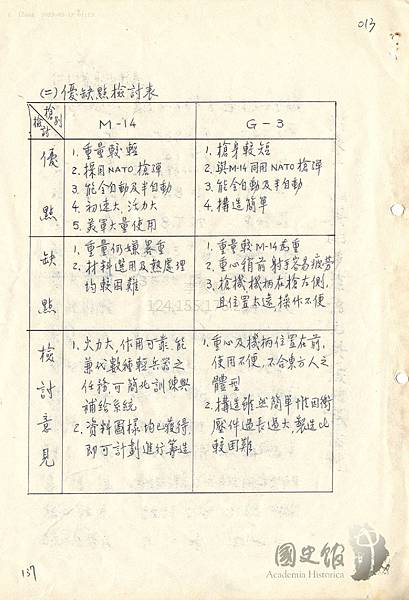 013
(二)優缺點檢討表
檢討 槍別
M-14
G-3
優點
1. 重量較輕
2. 採用NATO槍彈
3. 能全自動及半自動
4. 初速大、活力大
5. 美軍大量使用
1. 槍身較短
2. 與M-14同用NATO槍彈
3. 能全自動及半自動
4. 構造簡單
缺點
1. 重量仍嫌畧重
2. 材料選用及熱處理
均較困難
1. 重量較M-14為重
2. 重心稍前射手容易疲勞
3. 槍機機柄在槍左側,
且位置太遠,操作不便
檢討意見
1. 火力大,作用可靠,能
兼代數種輕兵器之
任務可簡化訓練與
補給系統
2. 資料圖樣均已獲得,
即可計劃進行籌造
1. 重心及機柄位置在前,
使用不便,不合東方人之
體型
2. 構造雖然簡單惟因衝
壓件過長過大,製造比
較困難
137
國史館
Academia Historica